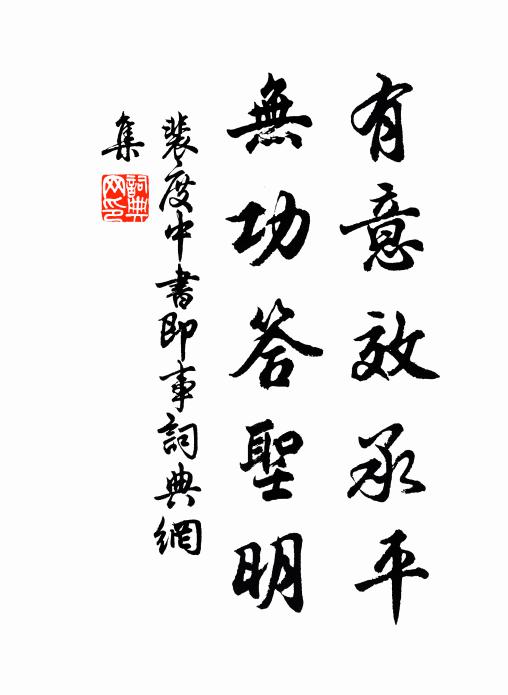 有意效承平
無功答聖明
裴度中書即事詞典網
集
詞典
网印